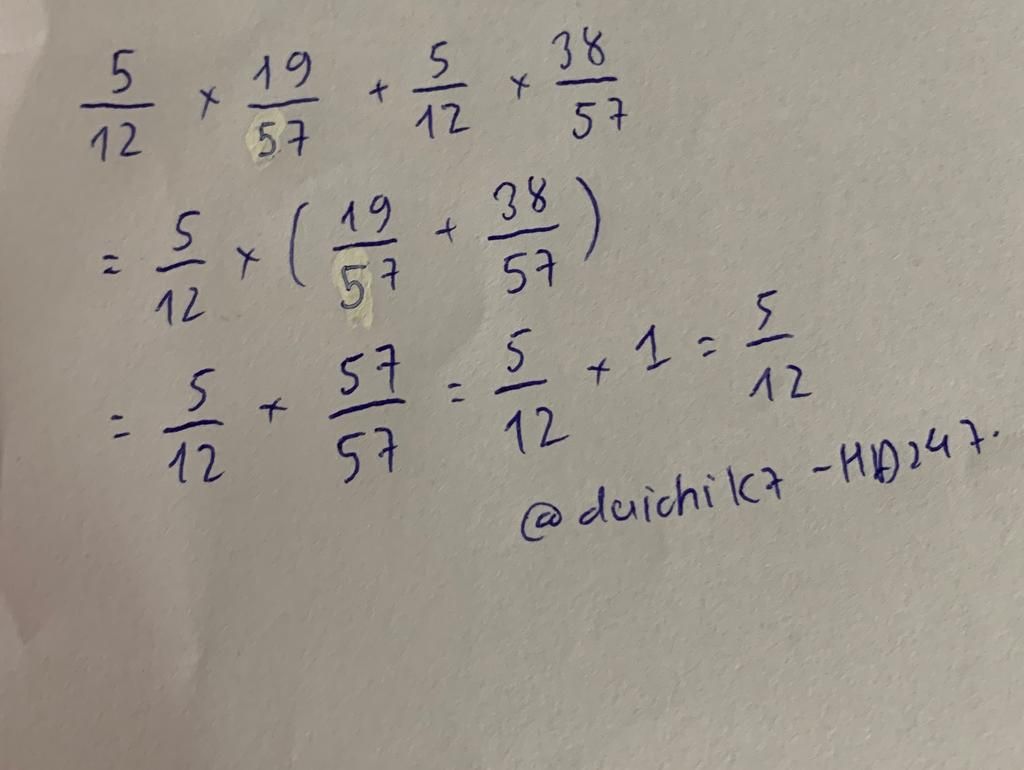 5/12 × 19/57 + 5/12 × 38/57
= 5/12 × ( 19/57 + 38/57 )
= 5/12 × 57/57 = 5/12 × 1 = 5/12
@daichik7 - HD247.